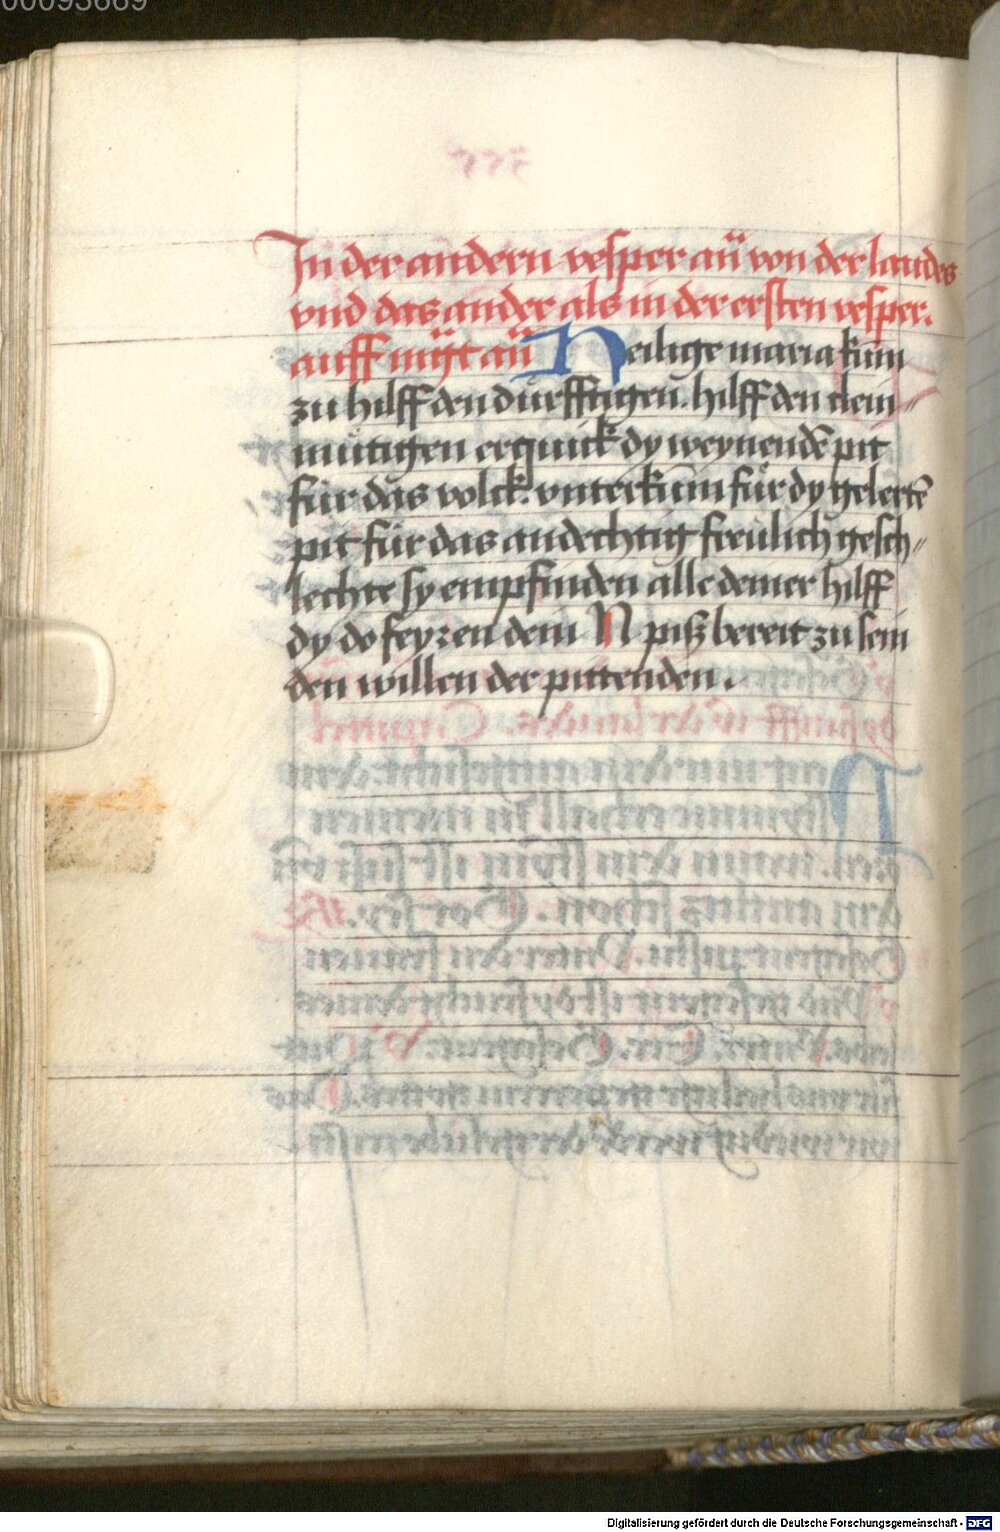 00093669
In der andern vesper an̄ von der laudes
vnd das ander als in der ersten vesper.
auff mg̈t an̄ Heilige maria kum
zu hilff den dürfftigen. hilff den clein〃
mütigen erquick dy weynendē pit
für das volck. vnterkum̄ für dy gelertē
pit für das andechtig freülich gesch〃
lechte sy empfinden alle deiner hilff
dy do feyren dein N piß bereit zu sein
den willen der pittenden.
Digitalisierung gefördert durch die Deutsche Forschungsgemeinschaft - DFG